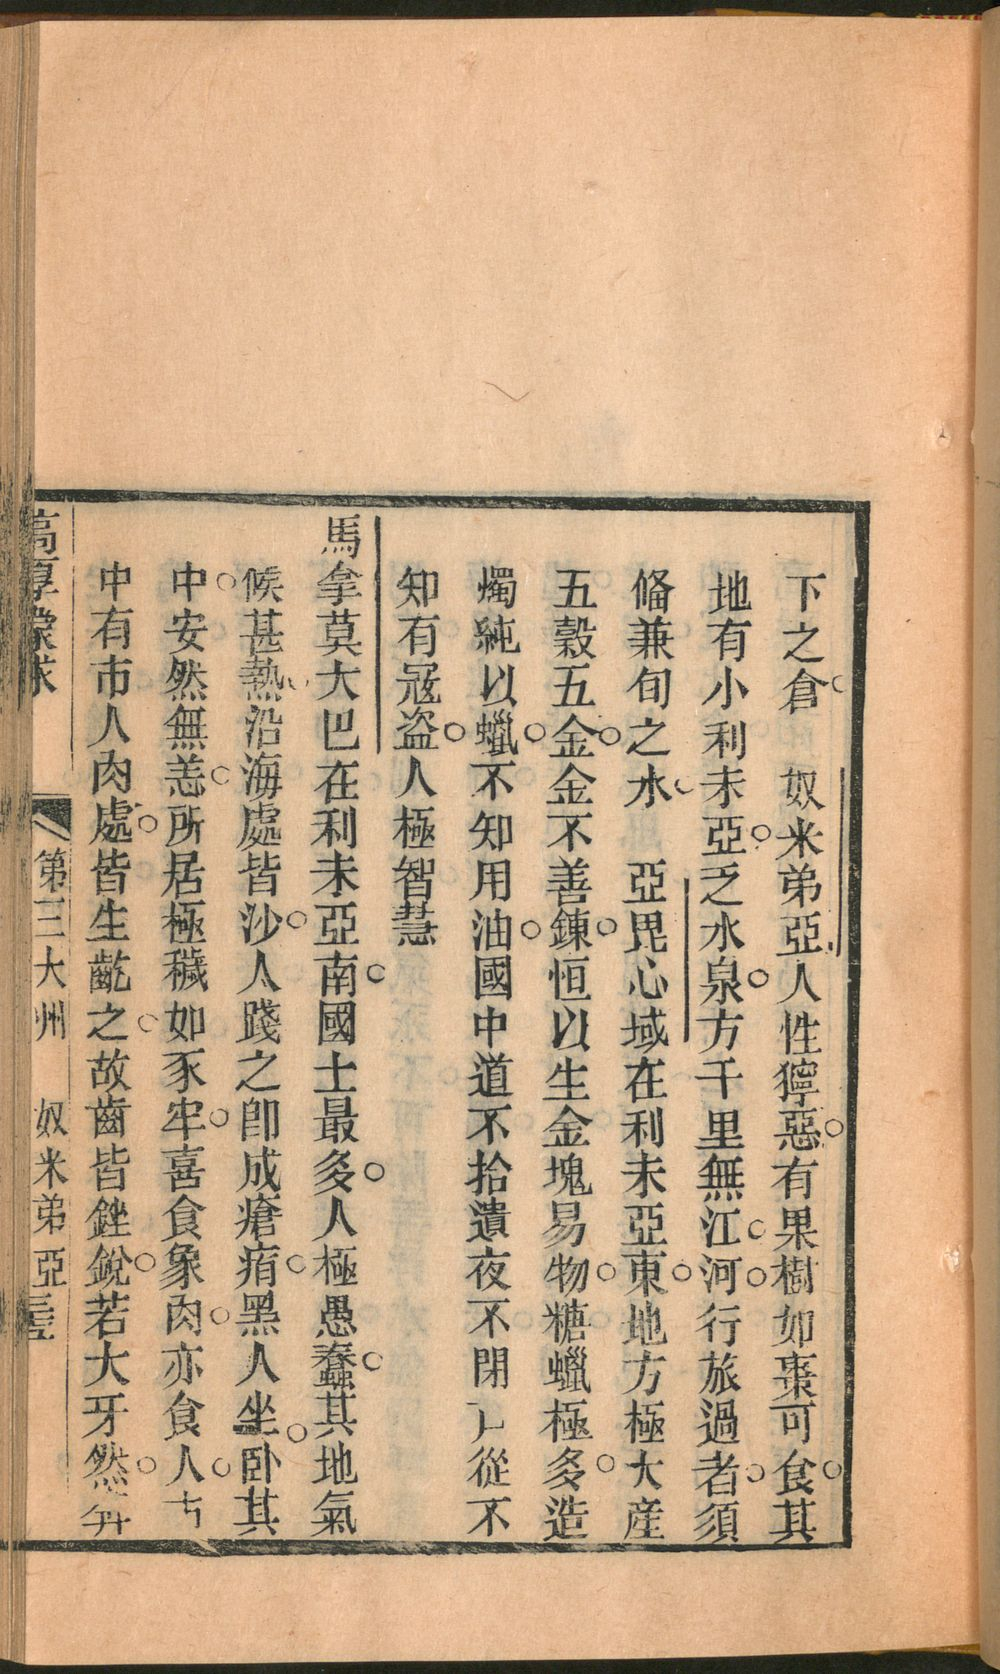 下之倉。奴米弟亞人性獰惡。有果樹如棗可食。其
地有小利未亞。乏水泉。方千里無江河。行旅過者。須
俻兼旬之水。亞毘心域在利未亞東。地方極大產
五穀五金。金不善鍊。恒以生金塊易物。糖蠟極多。造
燭純以蠟。不知用油。國中道不拾遺夜不閉從不
知有寇盜。人極智慧
馬拿莫大巴在利未亞南。國土最多。人極愚蠢。其地氣
候甚熱。沿海處皆沙。人踐之卽成瘡痏。黑人坐臥其
中。安然無恙。所居極穢如豕牢。喜食象肉。亦食人。
中有市人肉處。皆生齕之。故齒皆銼銳。若大牙然。
高厚蒙求 第三大州 奴米弟亞